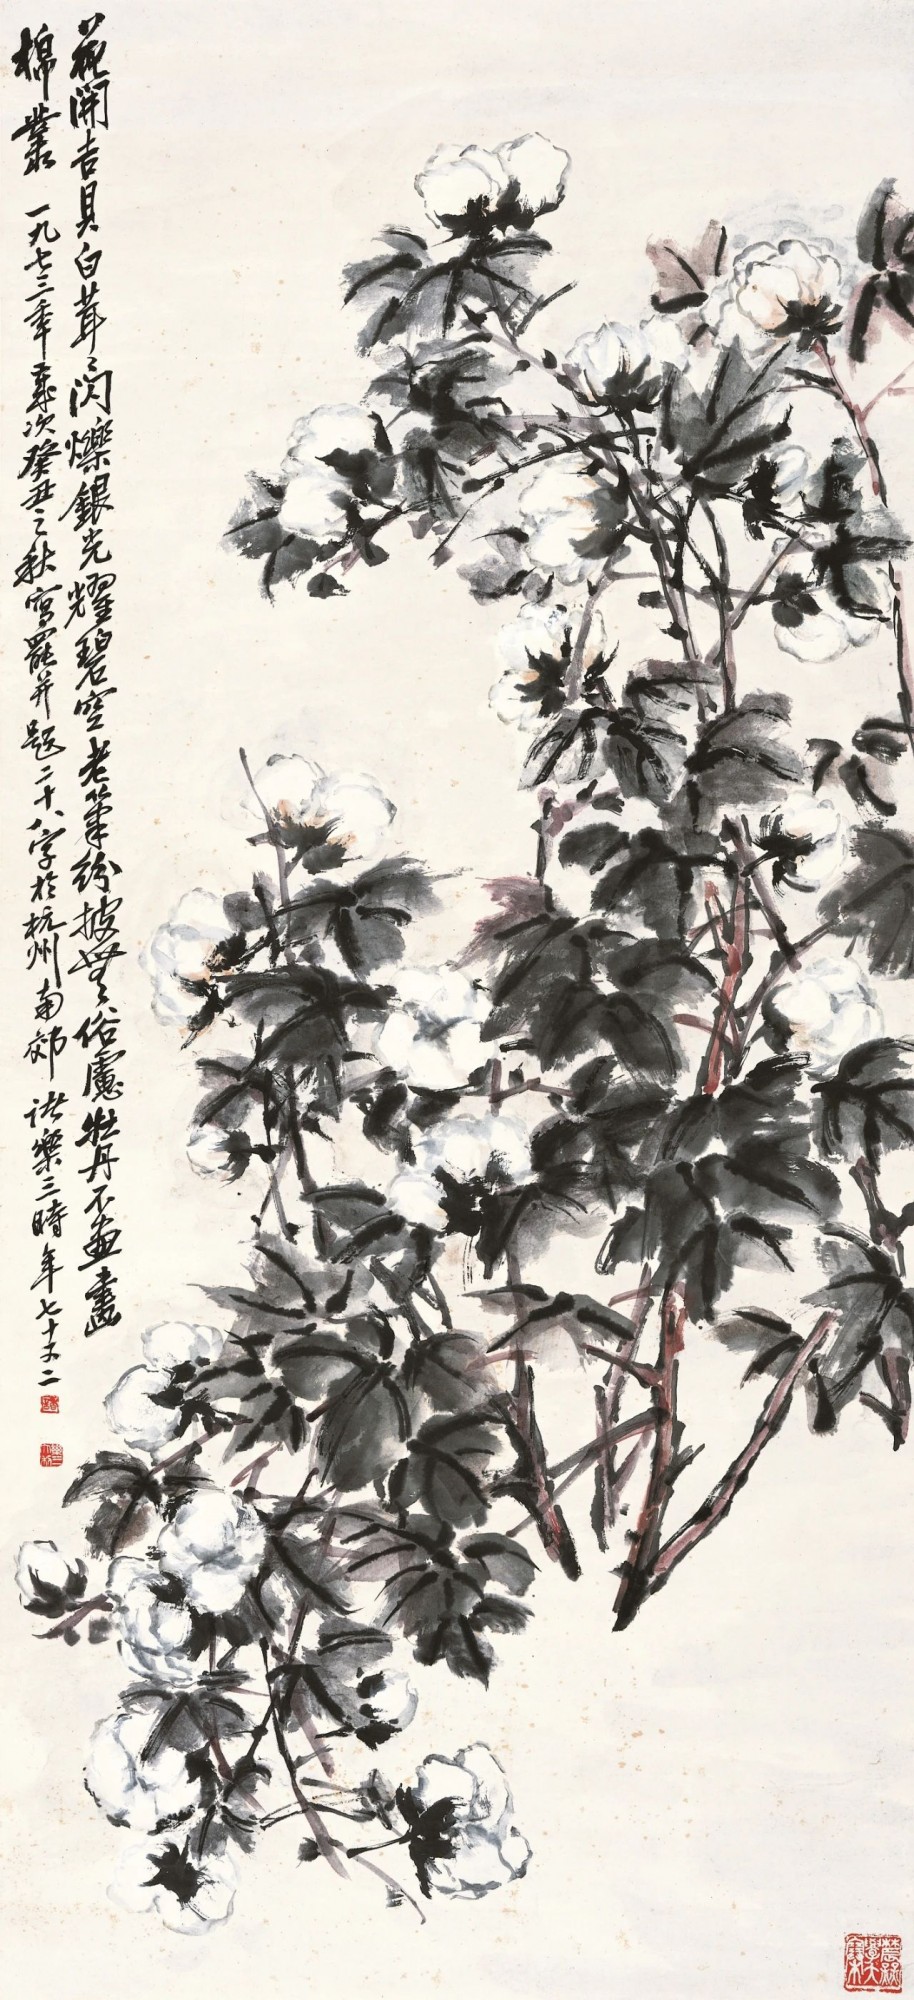 花開吉貝白茸〻閃爍銀光耀碧空老筆紛披無〻俗慮牡丹不画畫
棉叢 一九七三年歲次癸丑之秋寫罷并題二十八字於杭州南郊 諸樂三時年七十又二